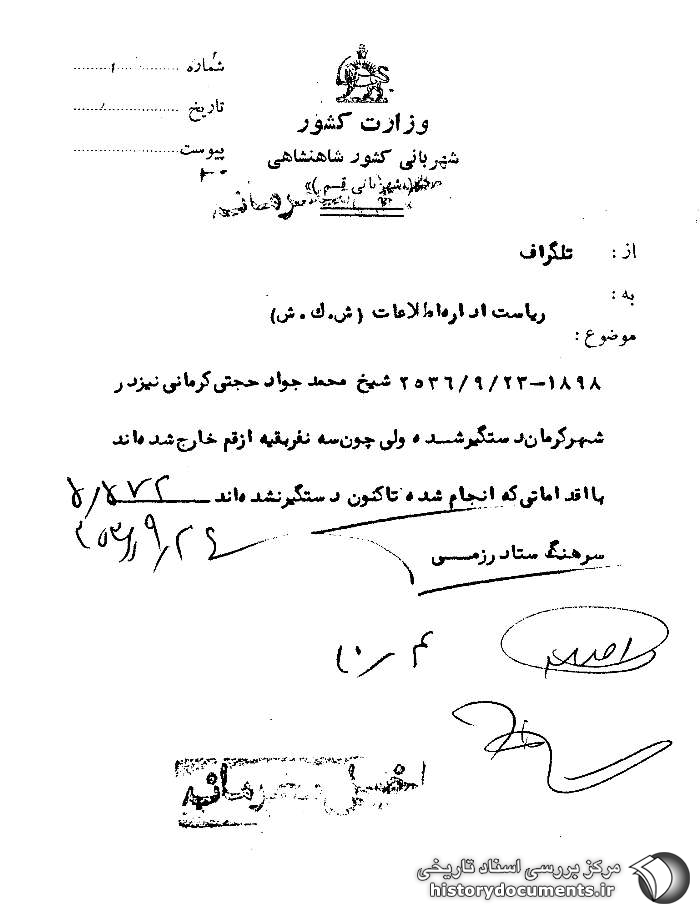 شماره
تاریخ
پیوست
وزارت کشور
شهربانی کشور شاهنشاهی
(شهربانی قم)
محرمانه
از : تلگراف
به : ریاست اداره اطلاعات (ش.ك.ش)
موضوع :
۱۸۹۸-۲۵۳۶/۹/۲۳ شیخ محمد جواد حجتی کرمانی نیز در
شهر کرمان دستگیر شده ولی چون سه نفر بقیه از قم خارج شده اند
با اقداماتی که انجام شده تاکنون دستگیر نشده اند
سرهنگ ستاد رزمی
خیلی محرمانه
مرکز بررسی اسناد تاریخی
historydocuments.ir